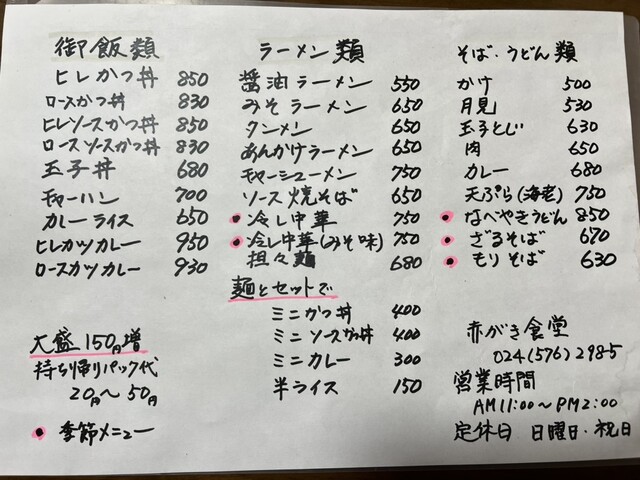 御飯類
ヒレかつ丼 850
ロースかつ丼 830
ヒレソースかつ丼 850
ロースソースかつ丼 830
玉子丼 680
チャーハン 700
カレーライス 650
ヒレカツカレー 950
ロースカツカレー 930
大盛150円増
持ち帰りパック代
20円〜50円
季節メニュー
ラーメン類
醤油ラーメン 550
みそラーメン 650
タンメン 650
あんかけラーメン 650
チャーシューメン 750
ソース焼そば 650
冷し中華 750
冷し中華(みそ味) 750
担々麺 680
麺とセットで
ミニかつ丼 400
ミニソースかつ丼 400
ミニカレー 300
半ライス 150
そば・うどん類
かけ 500
月見 530
玉子とじ 630
肉 650
カレー 680
天ぷら(海老) 750
なべやきうどん 850
ざるそば 670
もりそば 630
赤がき食堂
024(576)2985
営業時間
AM11:00〜PM2:00
定休日 日曜日・祝日